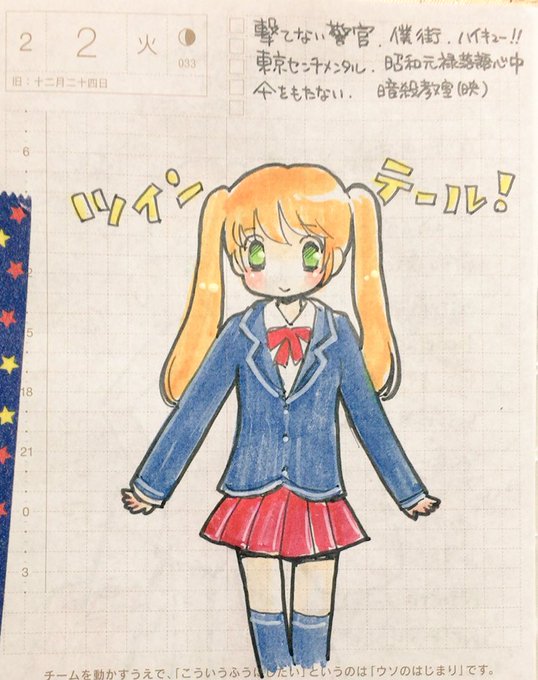 2 2 火 033
旧：十二月二十四日
撃てない警官. 僕街. ハイキュー!!
東京センチメンタル. 昭和元禄落語心中
傘をもたない. 暗殺教室(映)
6
ツインテール!
5
18
21
0
3
チームを動かすうえで、「こういうふうにしたい」というのは「ウソのはじまり」です。